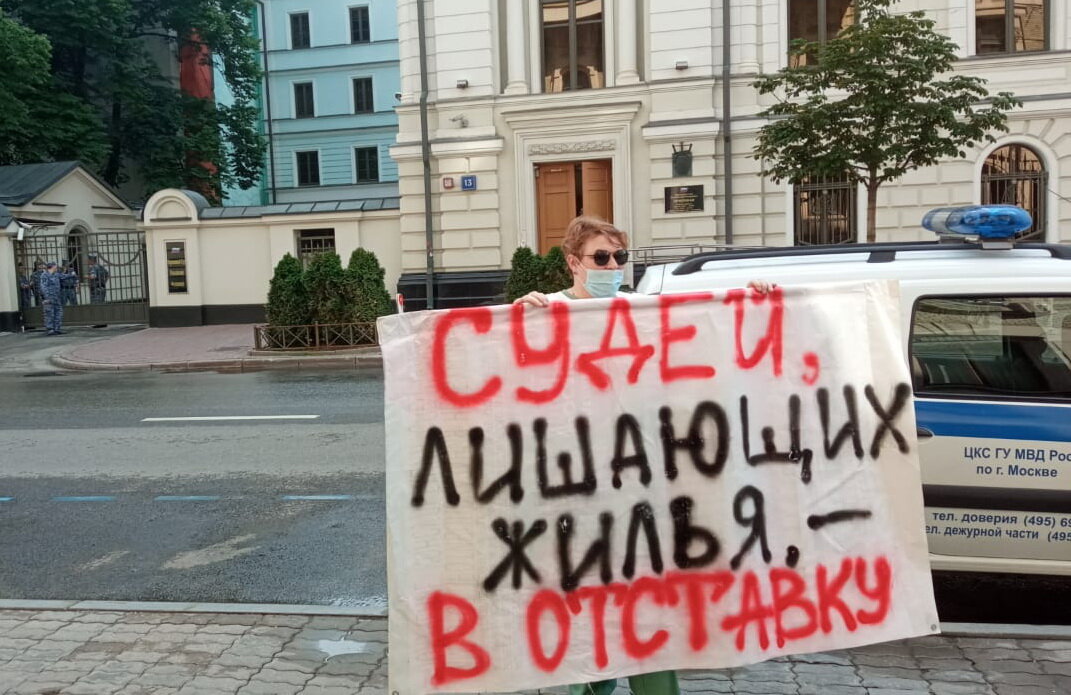 13
СУДЕЙ,
ЛИШАЮЩИХ
ЖИЛЬЯ, –
В ОТСТАВКУ
ЦКС ГУ МВД Рос
по г. Москве
тел. доверия (495) 69
ел. дежурной части (495